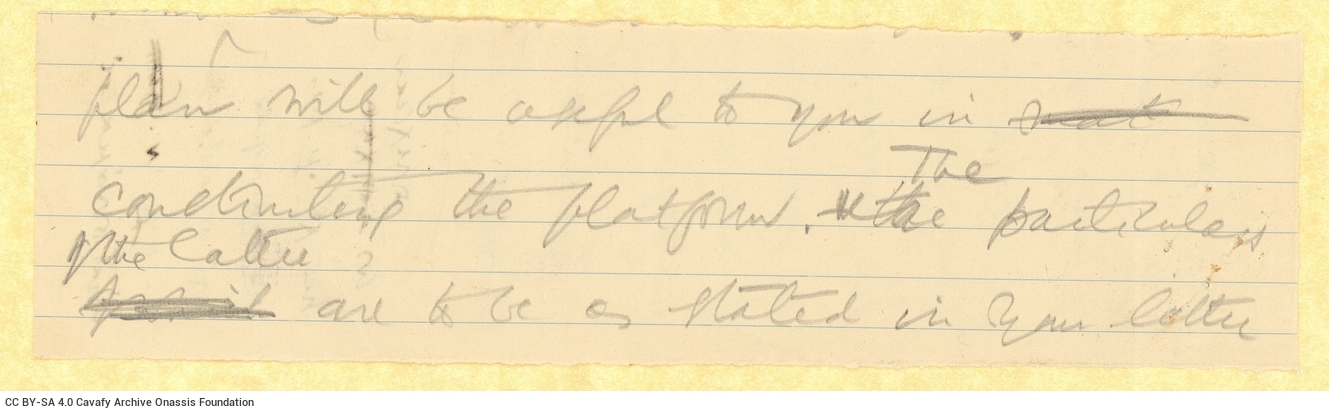 plan will be useful to you in
constructing the platform. The the particulars
of the latter
are to be as stated in your letter
CC BY-SA 4.0 Cavafy Archive Onassis Foundation